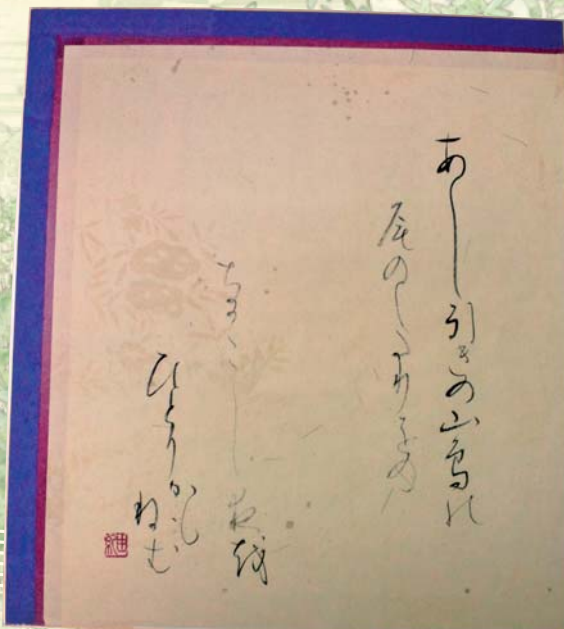 あし引きの山鳥の
尾のしたり尾の
なか〳〵し夜越
ひとりかも
ねむ